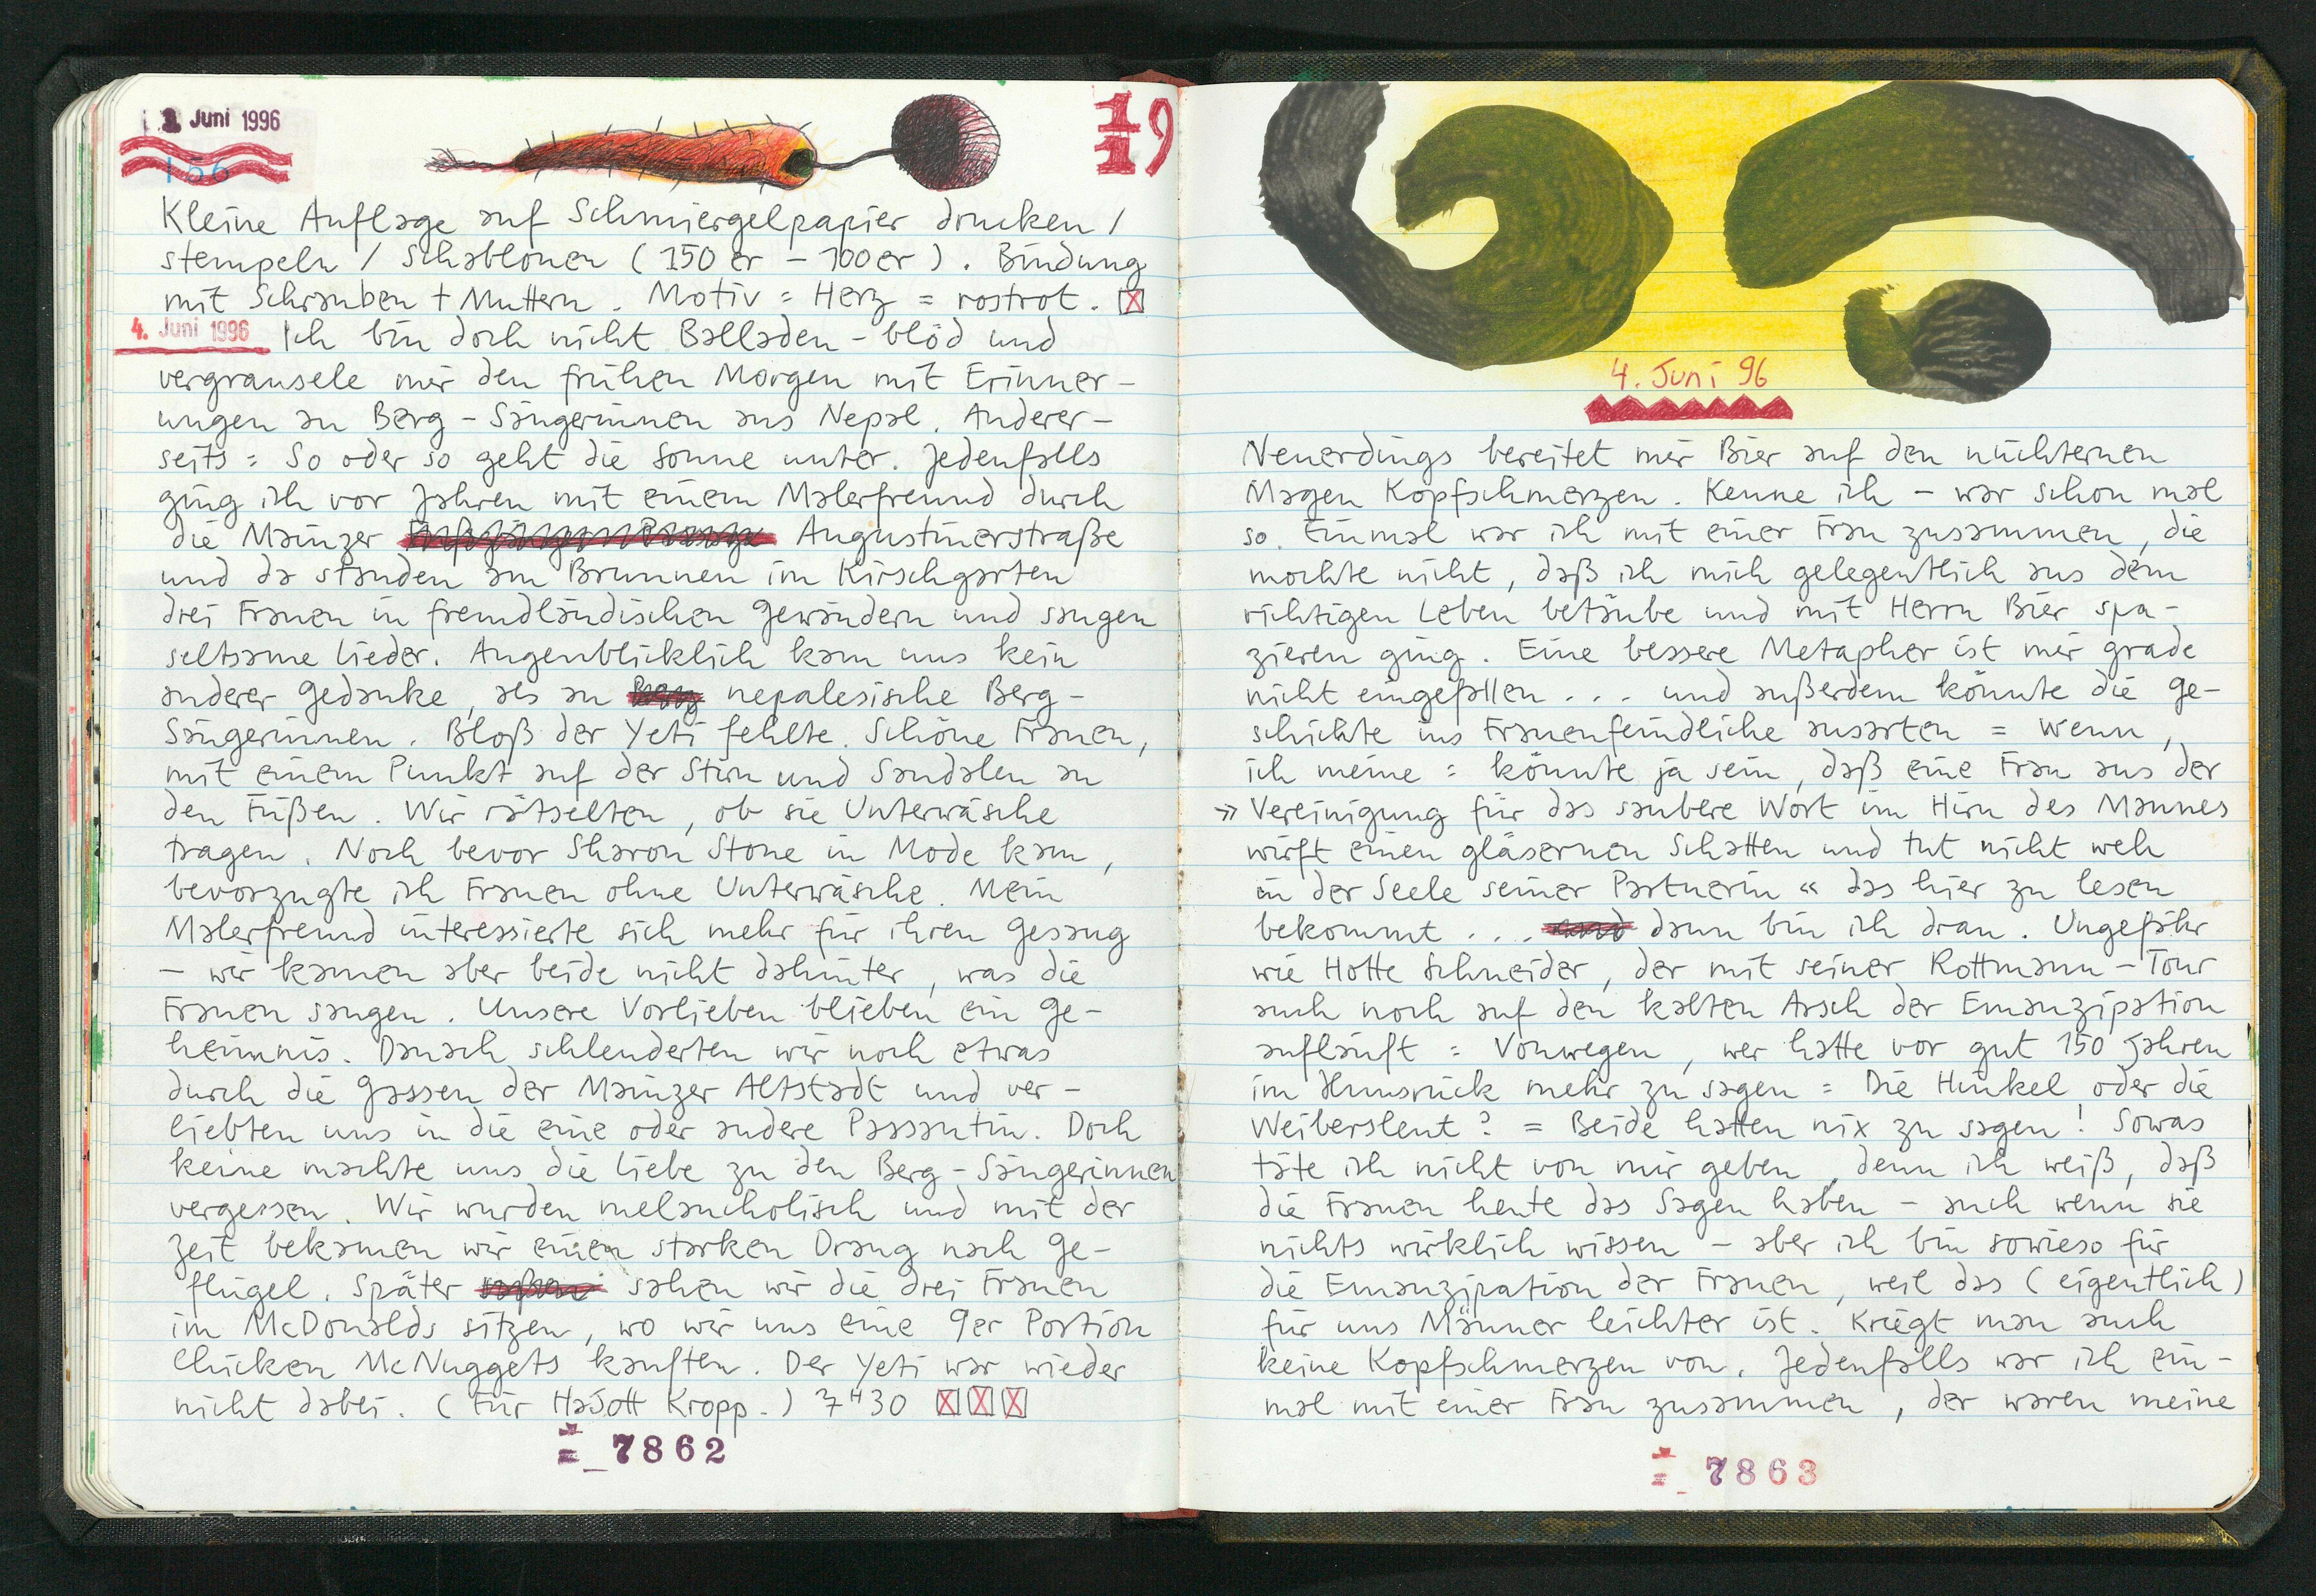 3. Juni 1996
156
19
1
Kleine Auflage auf Schmiergelpapier drucken /
stempeln / Schablonen (150er – 100er). Bindung
mit Schrauben + Muttern. Motiv = Herz = rostrot. ☒
4. Juni 1996 Ich bin doch nicht Balladen-blöd und
vergrausele mir den frühen Morgen mit Erinner-
ungen an Berg-Sängerinnen aus Nepal. Anderer-
seits = So oder so geht die Sonne unter. Jedenfalls
ging ich vor Jahren mit einem Malerfreund durch
die Mainzer Augustinerstraße
und da standen am Brunnen im Kirschgarten
drei Frauen in fremdländischen Gewändern und sangen
seltsame Lieder. Augenblicklich kam uns kein
anderer Gedanke, als an nepalesische Berg-
Sängerinnen. Bloß der Yeti fehlte. Schöne Frauen,
mit einem Punkt auf der Stirn und Sandalen an
den Füßen. Wir rätselten, ob sie Unterwäsche
tragen. Noch bevor Sharon Stone in Mode kam,
bevorzugte ich Frauen ohne Unterwäsche. Mein
Malerfreund interessierte sich mehr für ihren Gesang
– wir kamen aber beide nicht dahinter, was die
Frauen sangen. Unsere Vorlieben blieben ein Ge-
heimnis. Danach schlenderten wir noch etwas
durch die Gassen der Mainzer Altstadt und ver-
liebten uns in die eine oder andere Passantin. Doch
keine machte uns die Liebe zu den Berg-Sängerinnen
vergessen. Wir wurden melancholisch und mit der
Zeit bekamen wir einen starken Drang nach Ge-
flügel. Später sahen wir die drei Frauen
im McDonalds sitzen, wo wir uns eine 9er Portion
Chicken McNuggets kauften. Der Yeti war wieder
nicht dabei. (Für HaJott Kropp.) 7H30 ☒☒☒
7862
4. Juni 96
Neuerdings bereitet mir Bier auf den nüchternen
Magen Kopfschmerzen. Kenne ich – war schon mal
so. Einmal war ich mit einer Frau zusammen, die
mochte nicht, daß ich mich gelegentlich aus dem
richtigen Leben betäube und mit Herrn Bier spa-
zieren ging. Eine bessere Metapher ist mir grade
nicht eingefallen ... und außerdem könnte die Ge-
schichte ins Frauenfeindliche ausarten = Wenn,
ich meine = könnte ja sein, daß eine Frau aus der
» Vereinigung für das saubere Wort im Hirn des Mannes
wirft einen gläsernen Schatten und tut nicht weh
in der Seele seiner Partnerin « das hier zu lesen
bekommt ... dann bin ich dran. Ungefähr
wie Hotte Schneider, der mit seiner Rottmann-Tour
auch noch auf den kalten Arsch der Emanzipation
aufläuft = Vonwegen, wer hatte vor gut 150 Jahren
im Hunsrück mehr zu sagen = Die Hinkel oder die
Weiberslent? = Beide hatten nix zu sagen! Sowas
täte ich nicht von mir geben, denn ich weiß, daß
die Frauen heute das Sagen haben – auch wenn sie
nichts wirklich wissen – aber ich bin sowieso für
die Emanzipation der Frauen, weil das (eigentlich)
für uns Männer leichter ist. Kriegt man auch
keine Kopfschmerzen von. Jedenfalls war ich ein-
mal mit einer Frau zusammen, der waren meine
7863